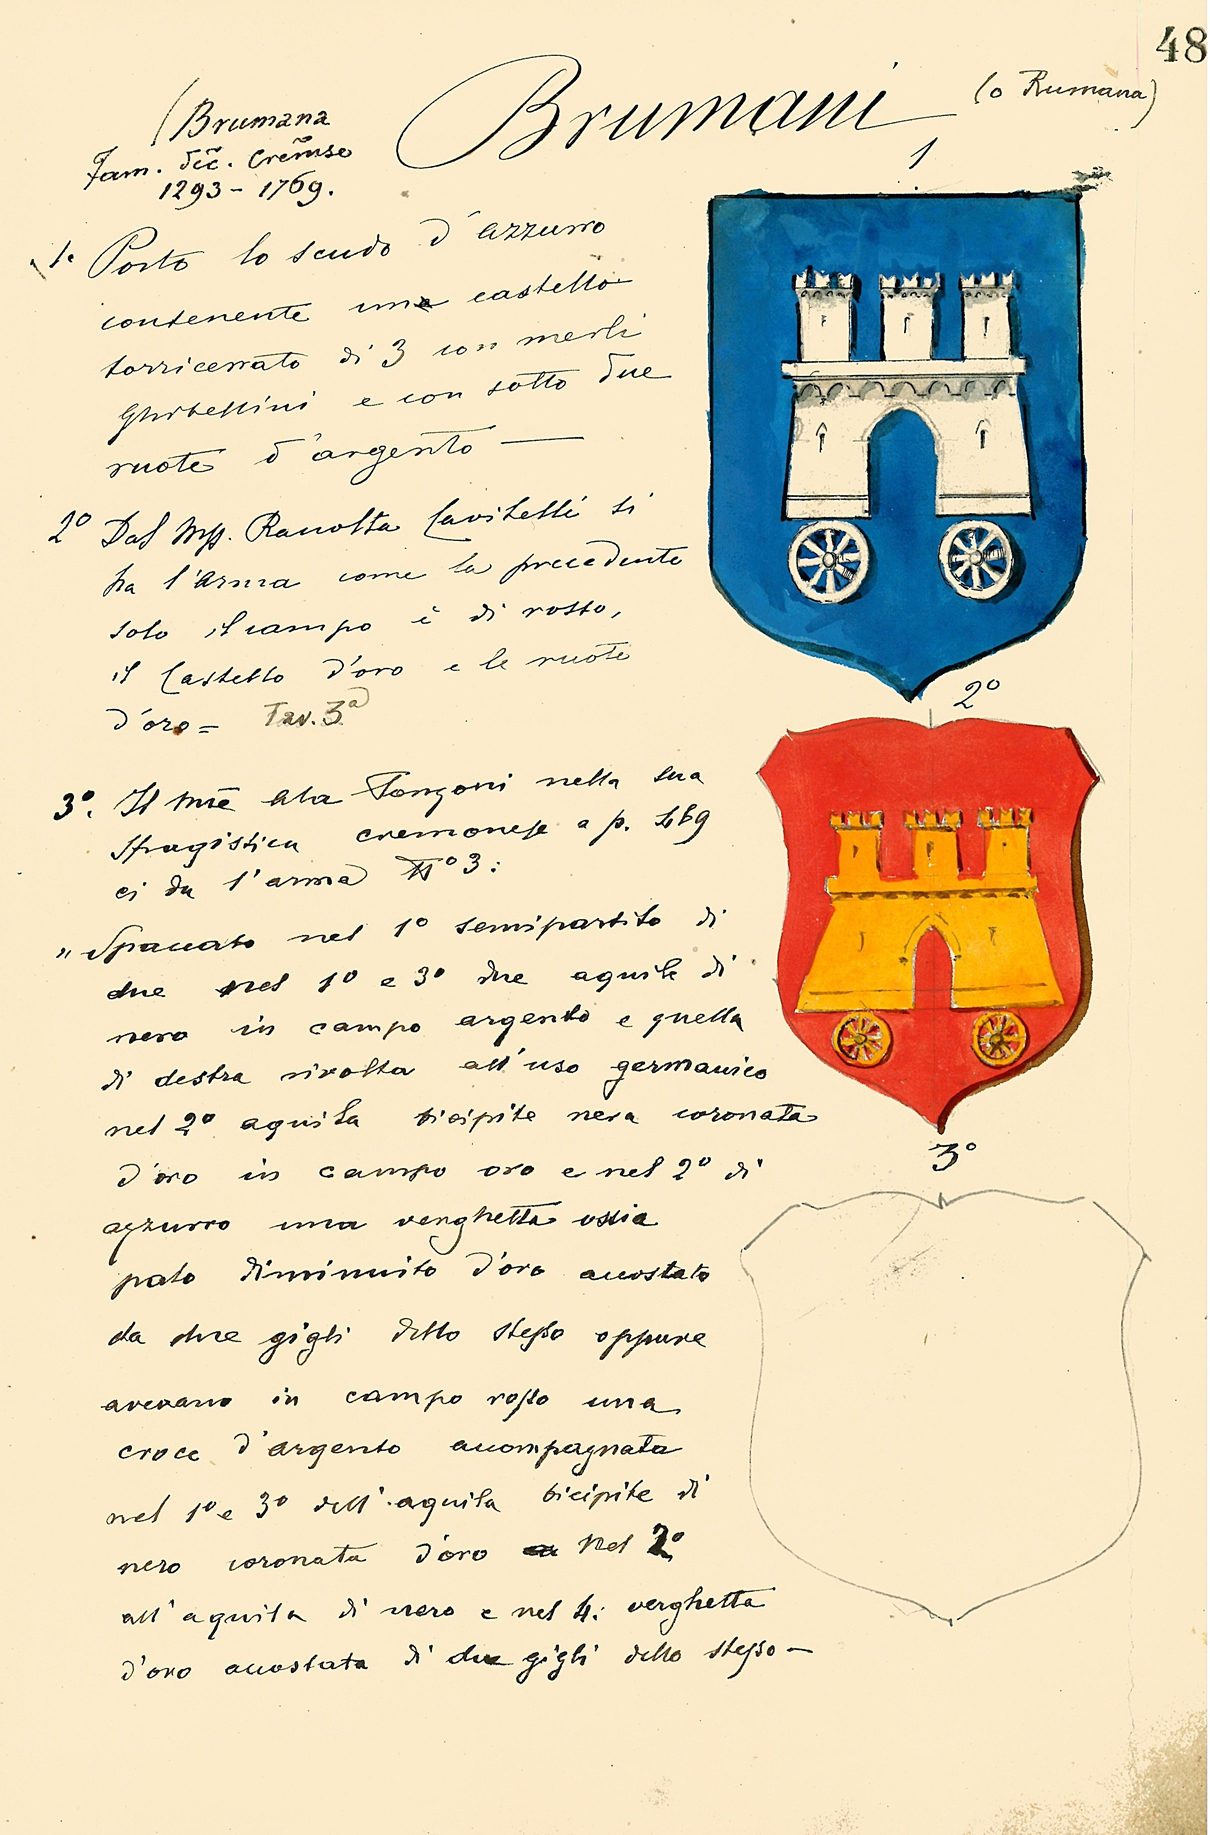 48
Brumani
(o Rumana)
(Brumana
Fam. Dec. Cremse
1293 - 1769.
1
1. Porto lo scudo d'azzurro
contenente une castello
torricerrato di 3 con merli
Ghibellini e con sotto due
ruote d'argento —
2º Dal Mss. Raccolta Cavitelli si
ha l'Arma come la precedente
solo il campo è di rosso,
il Castello d'oro e le ruote
d'oro = Tav. 3ª
2º
3º. Il Mse Ala Ponzoni nella sua
sfragistica cremonese a p. 469
ci da l'arma Nº 3:
" Spaccato nel 1º semipartito di
due nel 1º e 3º due aquile di
nero in campo argento e quella
di destra rivolta all'uso germanico
nel 2º aquila bicipite nera coronata
d'oro in campo oro e nel 2º di
azzurro una verghetta ossia
palo diminuito d'oro accostato
da due gigli dello stesso oppure
avevano in campo rosso una
croce d'argento accompagnata
nel 1º e 3º dell'aquila bicipite di
nero coronata d'oro Nel 2º
all'aquila di nero e nel 4: verghetta
d'oro accostata di due gigli dello stesso —
3º